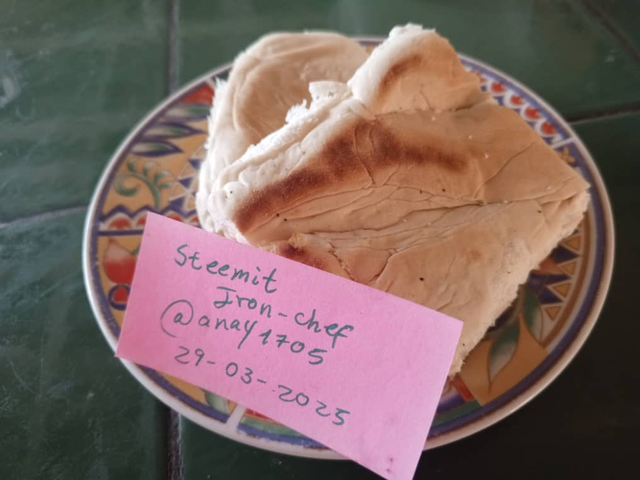 Steemit
Iron-chef
@anay1705
29-03-2025